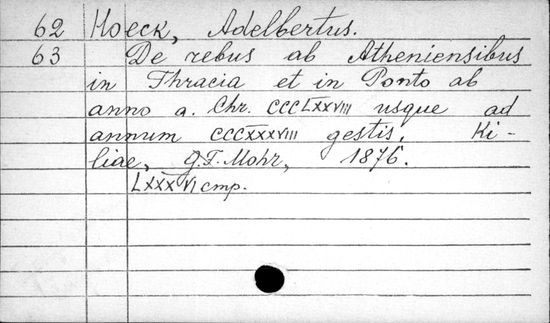 62 Hoeck, Adelbertus.
63 De rebus ab Atheniensibus
in Thracia et in Ponto ab
anno a. Chr. CCCLXXVIII usque ad
annum CCCXXXVIII gestis. Ki-
liae, G.F. Mohr, 1876.
LXXXVI стр.